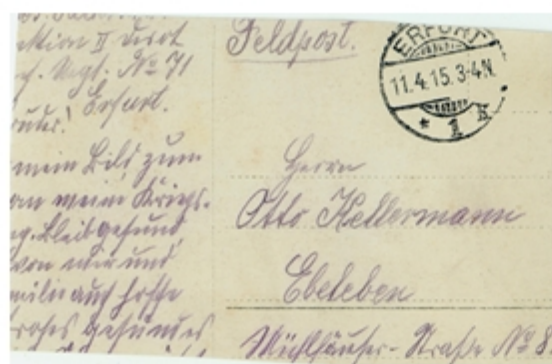 ktion II Ders.
Regt. № 71
Erfurt.
mein Bild zum
an meine Kriegs-
Bleib gesund
von mir und
auf hoffe
frohes gesundes
Feldpost.
ERFURT
11.4.15. 3-4N.
* 1 h
Herrn
Otto Kellermann
Ebeleben
Mühlhäuser-Straße № 8